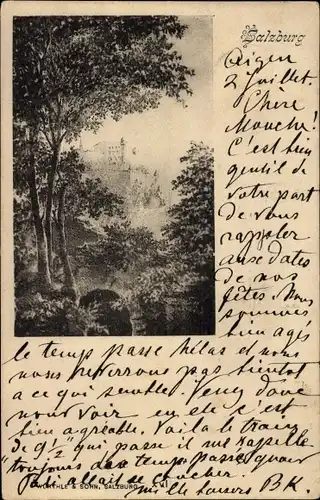 Salzburg
Aigen
2 Juillet.
Chère
Mouche!
C'est bien
gentil de
votre part
de vous
rappeler
aux dates
de nos
fêtes. Nous
sommes
bien agés
le temps passe hélas et nous
nous pas bientot
a ce qui semble. Venez donc
nous voir en ete c'est
bien agréable. Voila le train
de 9 1/2 qui passe il me rapelle
toujours temps passé quand
allais coucher.
WÜRTHLE & SOHN, SALZBURG
mille B.K.